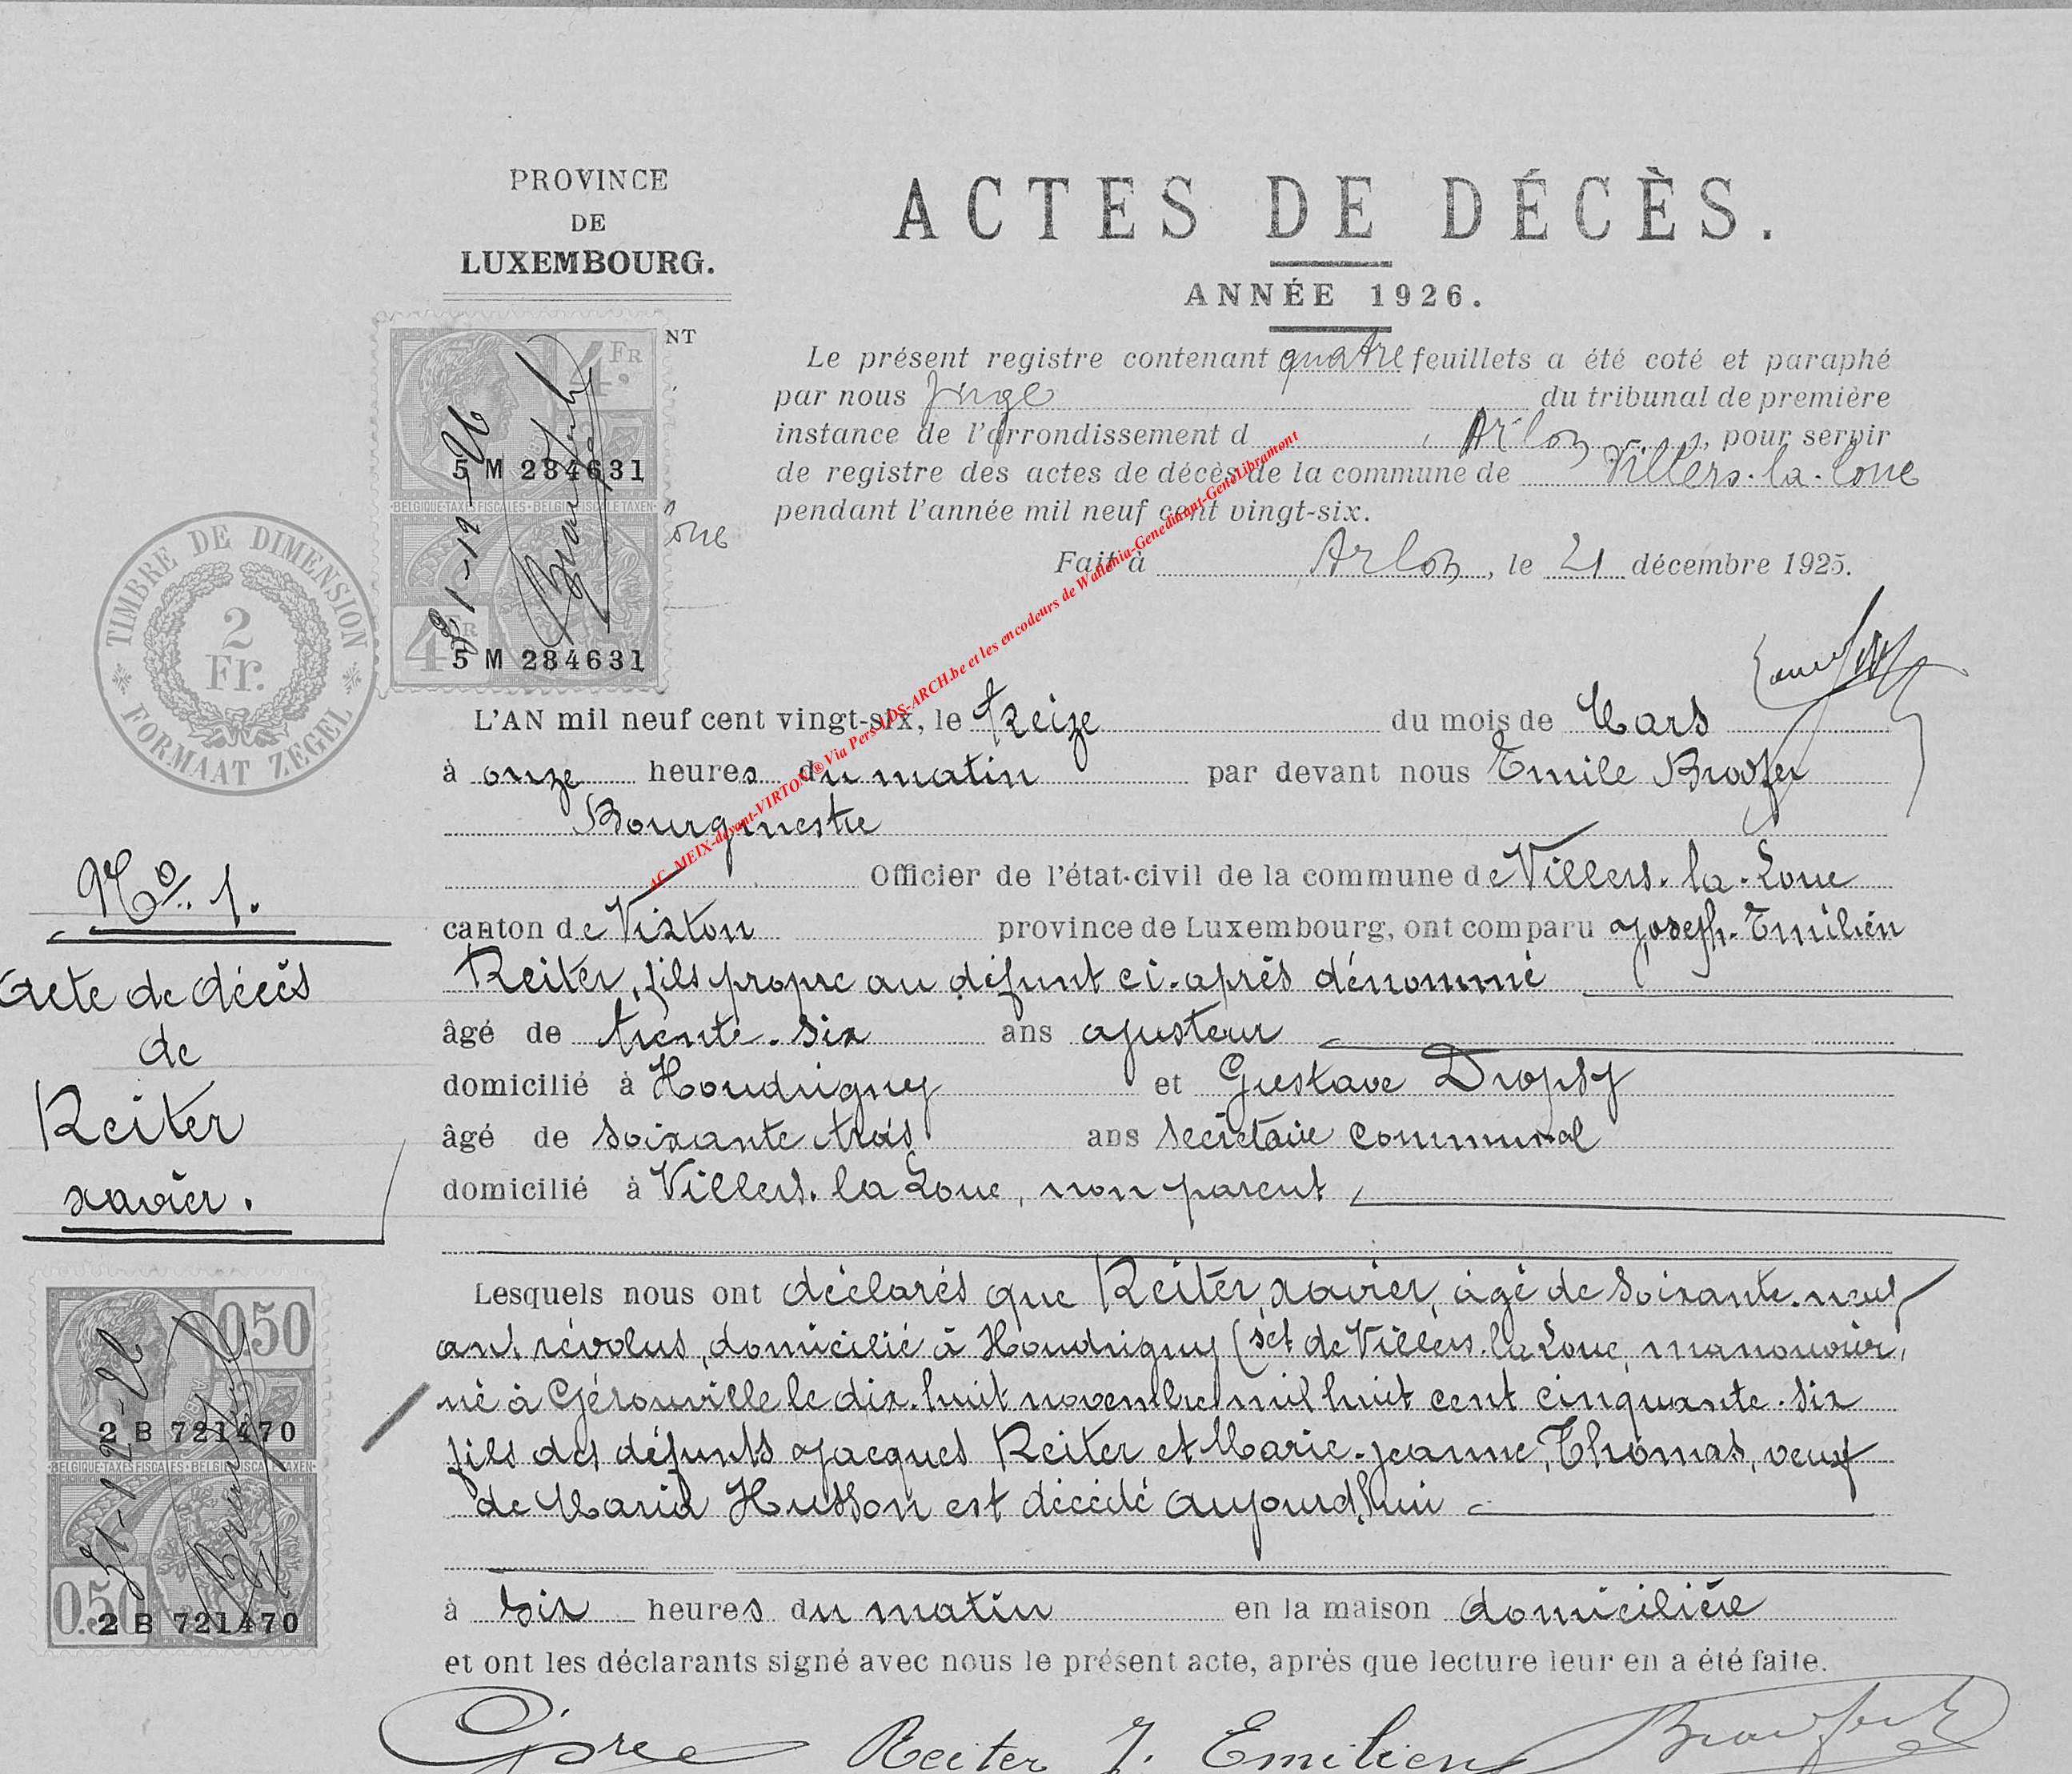 PROVINCE
DE
LUXEMBOURG.
NT
oue
ACTES DE DÉCÈS.
ANNÉE 1926.
Le présent registre contenant quatre feuillets a été coté et paraphé
par nous Juge du tribunal de première
instance de l'arrondissement d Arlon, pour servir
de registre des actes de décès de la commune de Villers-la-Loue
pendant l'année mil neuf cent vingt-six.
Fait à Arlon, le 21 décembre 1925.
4 FR
5 M 284631
BELGIQUE TAXES FISCALES · BELGIE FISCALE TAXEN
4 FR
5 M 284631
31-12-26
TIMBRE DE DIMENSION
2
Fr.
FORMAAT ZEGEL
AC_MEIX-devant-VIRTON ® Via Pers-LDS-ARCH.be et les encodeurs de Wallonia-Genedinant-GeneLibramont
L'AN mil neuf cent vingt-six, le treize du mois de Mars
à onze heures du matin par devant nous Emile
Bourgmestre
Officier de l'état-civil de la commune de Villers-la-Loue
canton de Virton province de Luxembourg, ont comparu Joseph-Emilien
Reiter, fils propre au défunt ci-après dénommé
âgé de trente-six ans ajusteur
domicilié à Houdrigny et Gustave Dropsy
âgé de soixante trois ans secrétaire communal
domicilié à Villers-la Loue, non parent
No. 1.
Acte de décès
de
Reiter
xavier.
Lesquels nous ont déclarés que Reiter, xavier, âgé de soixante-neuf
ans révolus, domicilié à Houdrigny (sct de Villers-la Loue, manouvrier,
né à Gérouville le dix-huit novembre mil huit cent cinquante-six
fils des défunts Jacques Reiter et Marie-jeanne, Thomas, veuf
de Maria Husson est décédé aujourd'hui
à six heures du matin en la maison domicilière
et ont les déclarants signé avec nous le présent acte, après que lecture leur en a été faite.
0.50
2 B 721470
BELGIQUE TAXES FISCALES · BELGIE FISCALE TAXEN
0.50
2 B 721470
31-12-26
Reiter J. Emilien